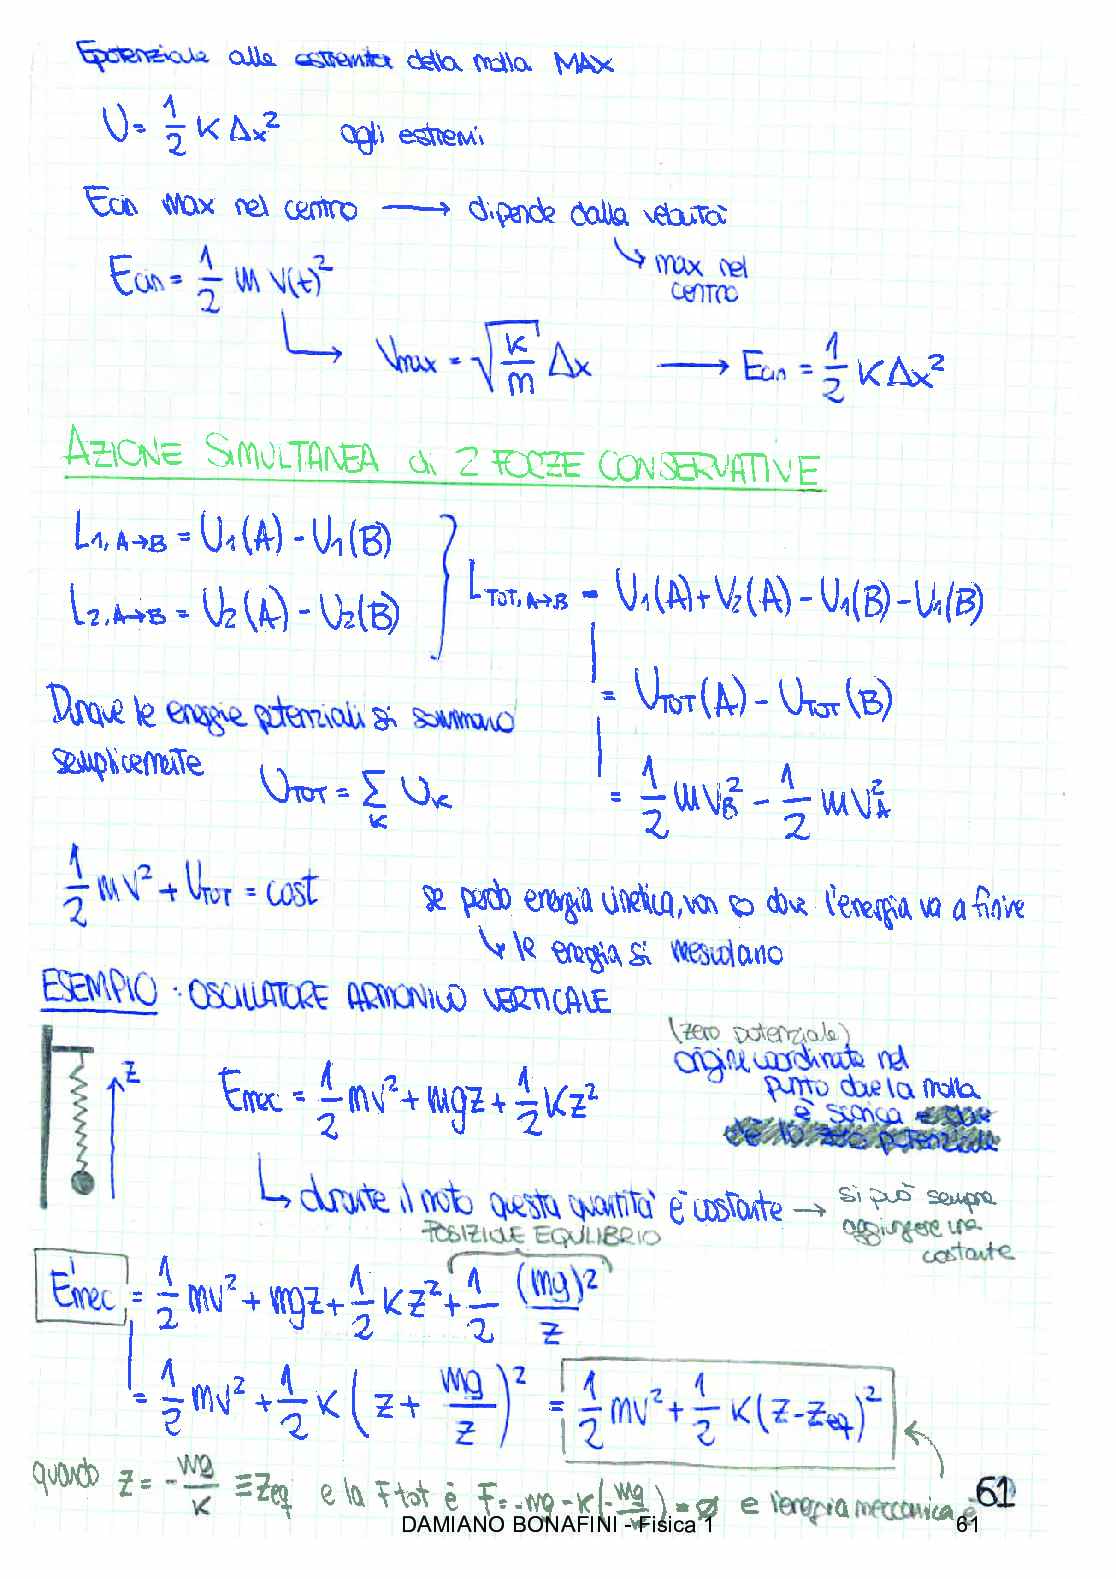 Epotenziale alle estremità della molla MAX
U = 1/2 K Δx² agli estremi
Ecin max nel centro → dipende dalla velocità
↳ max nel
centro
Ecin = 1/2 m v(t)²
↳ Vmax = √(K/m) Δx → Ecin = 1/2 K Δx²
AZIONE SIMULTANEA di 2 FORZE CONSERVATIVE
L1, A→B = U1(A) - U1(B)
L2, A→B = U2(A) - U2(B)
LTOT, A→B = U1(A) + U2(A) - U1(B) - U1(B)
= UTOT(A) - UTOT(B)
= 1/2 m VB² - 1/2 m VA²
Dunque le energie potenziali si sommano
semplicemente
UTOT = Σ_K UK
1/2 mv² + UTOT = cost
se perdo energia cinetica, non so dove l'energia va a finire
↳ le energia si mescolano
ESEMPIO: OSCILLATORE ARMONICO VERTICALE
z
Emec = 1/2 mv² + mgz + 1/2 Kz²
(zero potenziale)
origine coordinate nel
punto dove la molla
è scarica
↳ durante il moto questa quantità è costante → si può sempre
aggiungere una
costante
POSIZIONE EQULIBRIO
E'mec = 1/2 mv² + mgz + 1/2 Kz² + 1/2 (mg)²/z
= 1/2 mv² + 1/2 K (z + mg/z)² = 1/2 mv² + 1/2 K(z - zeq)²
quando z = -mg/K ≡ zeq e la Ftot è F = -mg - K(-mg/K) = ø e l'energia meccanica è
61
DAMIANO BONAFINI - Fisica 1
61